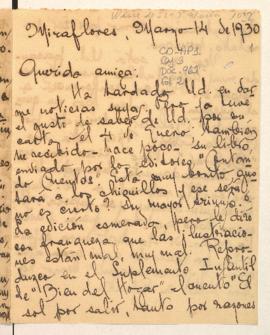 Miraflores, Marzo 14 de 1930
CO-AP1
Caj 3
Doc. 963
fol 2
Querida amiga:
Ha tardado Ud. en dar
me noticias suyas, pero ya tuve
el gusto de saber de Ud. por su
carta el 4 de Enero. También
he recibido - hace poco - su libro,
enviado por los editores "Contan
do Cuentos". Está muy bonito, gus
tará a los chiquillos y ese será
no es cierto? Su mayor triunfo.
La edición esmerada, pero le diré
con franqueza que las ilustracio-
nes están mal, muy mal. Repro-
duzco en el Suplemento Infantil
de "Bien del Hogar" el cuento El
sol por salir, tanto por razones